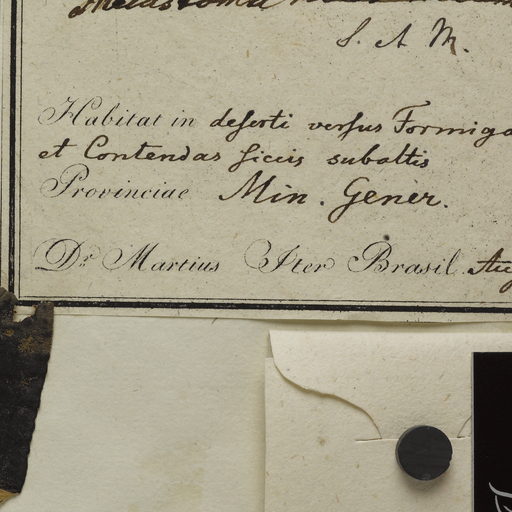 Melastoma
S. A. M.
Habitat in deserti versus Formiga
et Contendas siccis subaltis
Provinciae Min. Gener.
Dr. Martius Iter Brasil. Aug